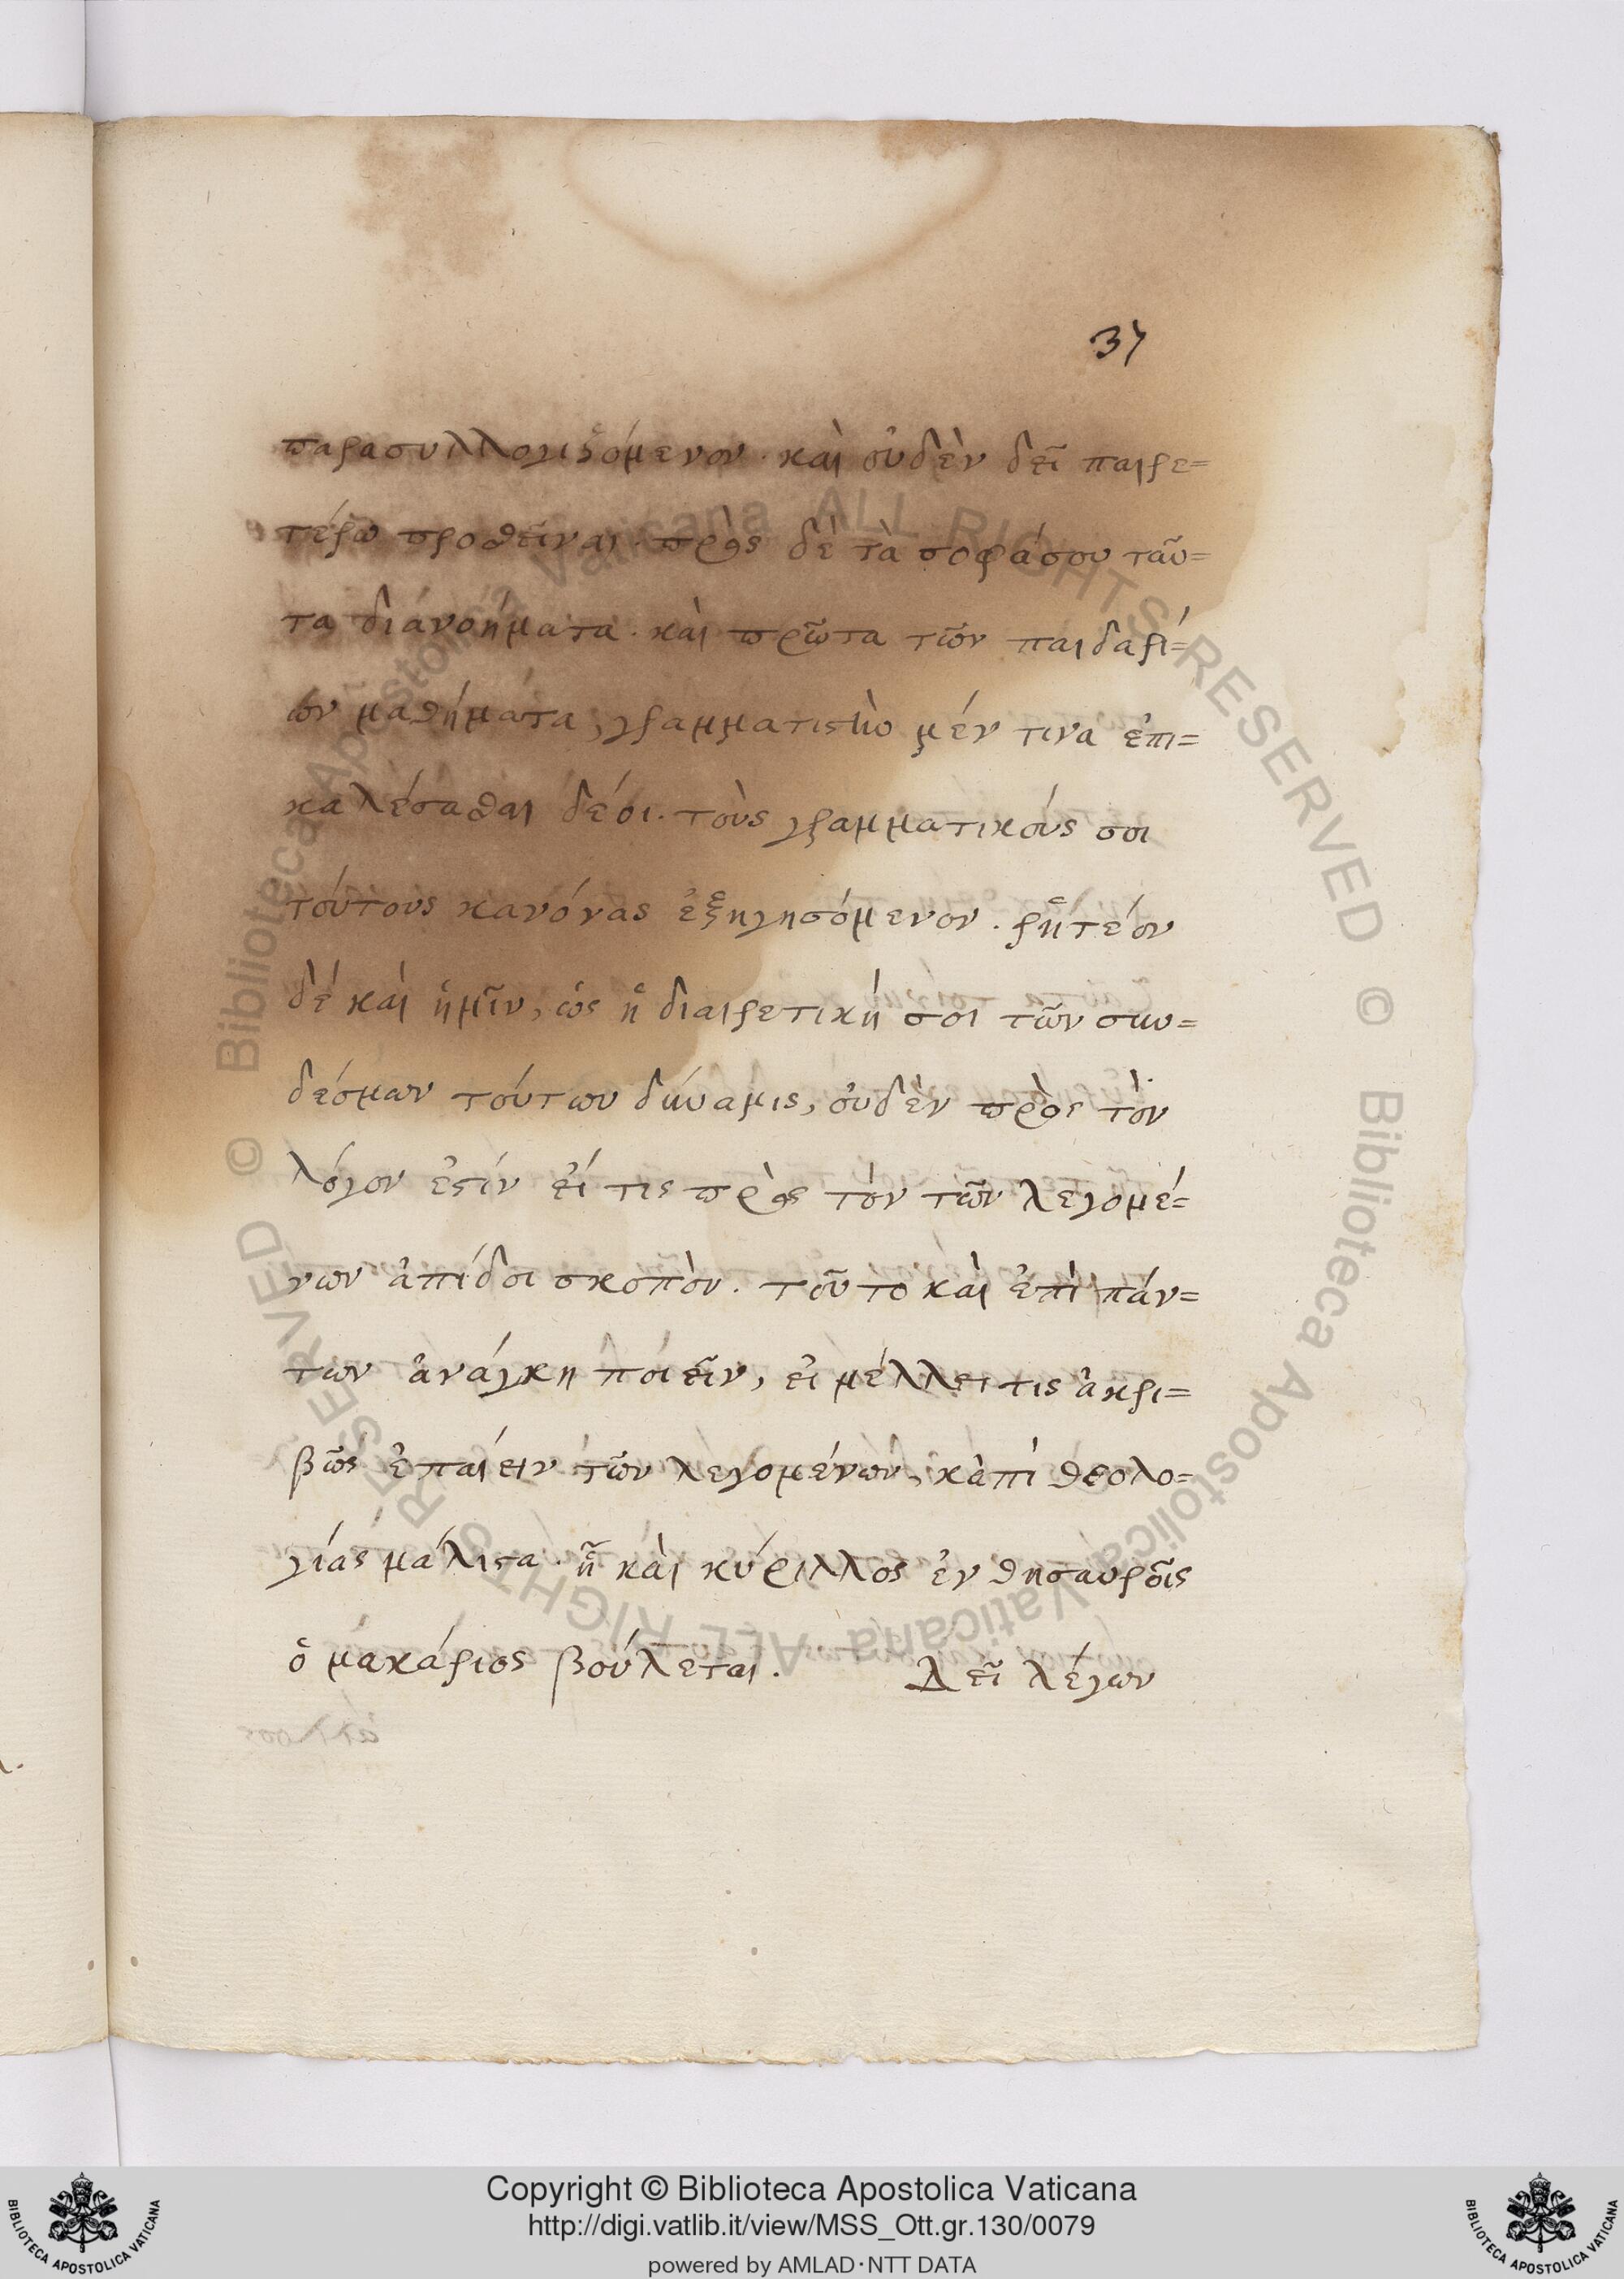 37
παρασυλλογιζόμενον. καὶ οὐδὲν δεῖ παιρε=
τέρω προσθεῖναι. πρὸς δὲ τὰ σοφάσου ταῦ=
τα διάνοήματα. καὶ πρῶτα τῶν παιδαρί=
ων μαθήματα, γραμματιστὴν μέν τινα ἐπι=
καλέσασθαι δέοι. τοὺς γραμματικούς σοι
τούτους κανόνας ἐξηγησόμενον. ῥητέον
δέ καὶ ἡμῖν, ὡς ἡ διαιρετική σοι τῶν συν=
δέσμων τούτων δύναμις, οὐδὲν πρὸς τὸν
λόγον ἐστίν εἴ τις πρὸς τὸν τῶν λεγομέ=
νων ἀπίδοι σκοπὸν. τοῦτο καὶ ἐπὶ πάν=
των ἀνάγκη ποιεῖν, εἰ μέλλει τις ἀκρι=
βῶς ἐπαίειν τῶν λεγομένων, κἀπὶ θεολο=
γίας μάλιστα. ᾗ καὶ κύριλλος ἐν θησαυροῖς
ὁ μακάριος βούλεται. Δεῖ λέγων
Copyright © Biblioteca Apostolica Vaticana
http://digi.vatlib.it/view/MSS_Ott.gr.130/0079
powered by AMLAD·NTT DATA
© Biblioteca Apostolica Vaticana ALL RIGHTS RESERVED © Biblioteca Apostolica Vaticana ALL RIGHTS RESERVED
BIBLIOTECA APOSTOLICA VATICANA
BIBLIOTECA APOSTOLICA VATICANA